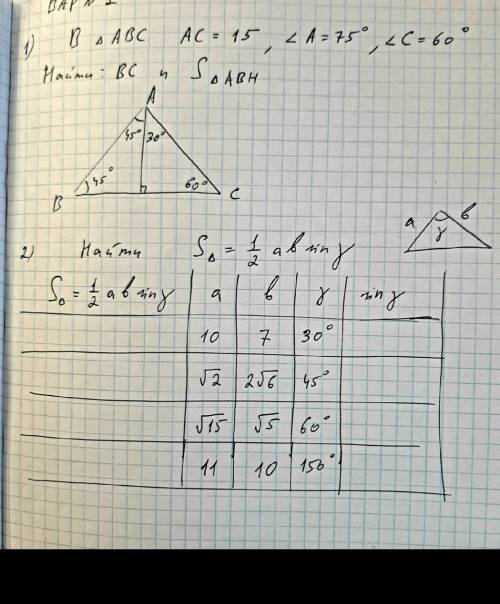 ВАР N
1) В △ABC AC = 15, ∠A = 75°, ∠C = 60°
Найти: BC и S△ABH
A
45° 30°
B 45° 60° C
2) Найти S△ = 1/2 a b sin γ
a γ b
S△ = 1/2 a b sin γ | a | b | γ | sin γ
10 | 7 | 30°
√2 | 2√6 | 45°
√15 | √5 | 60°
11 | 10 | 150°